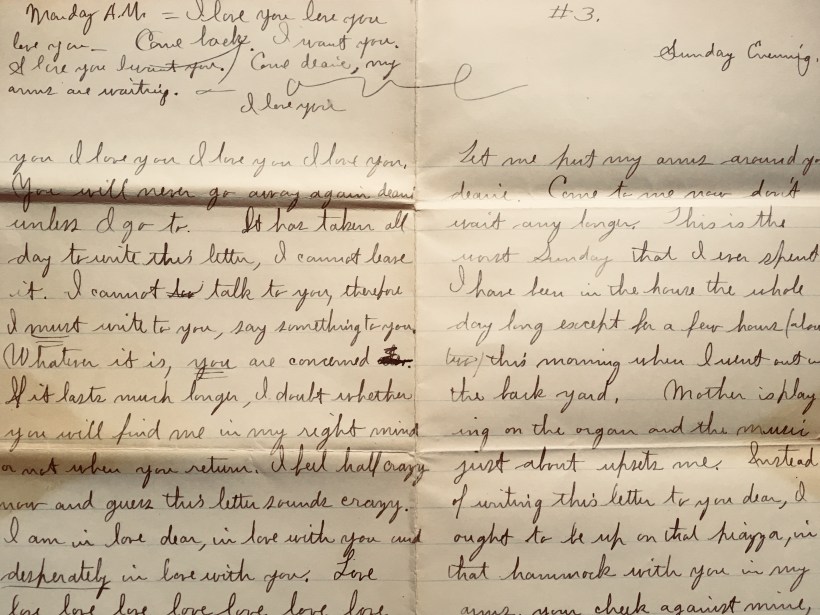 Monday A.M. = I love you love you
love you — Come back. I want you.
I love you I want you. Come dearie, my
arms are waiting. —
I love you
you I love you I love you I love you.
You will never go away again dearie
unless I go to. It has taken all
day to write this letter, I cannot leave
it. I cannot talk to you, therefore
I must write to you, say something to you.
Whatever it is, you are concerned
If it lasts much longer, I doubt whether
you will find me in my right mind
or not when you return. I feel half crazy
now and guess this letter sounds crazy.
I am in love dear, in love with you and
desperately in love with you. Love
love love love love love love
#3.
Sunday Evening.
Let me put my arms around yo
dearie. Come to me now don't
wait any longer. This is the
worst Sunday that I ever spent
I have been in the house the whole
day long except for a few hours (alou
two) this morning when I went out in
the back yard. Mother is play
ing on the organ and the music
just about upsets me. Instead
of writing this letter to you dear, I
ought to be up on that piazza, in
that hammock with you in my
arms, your cheek against mine,